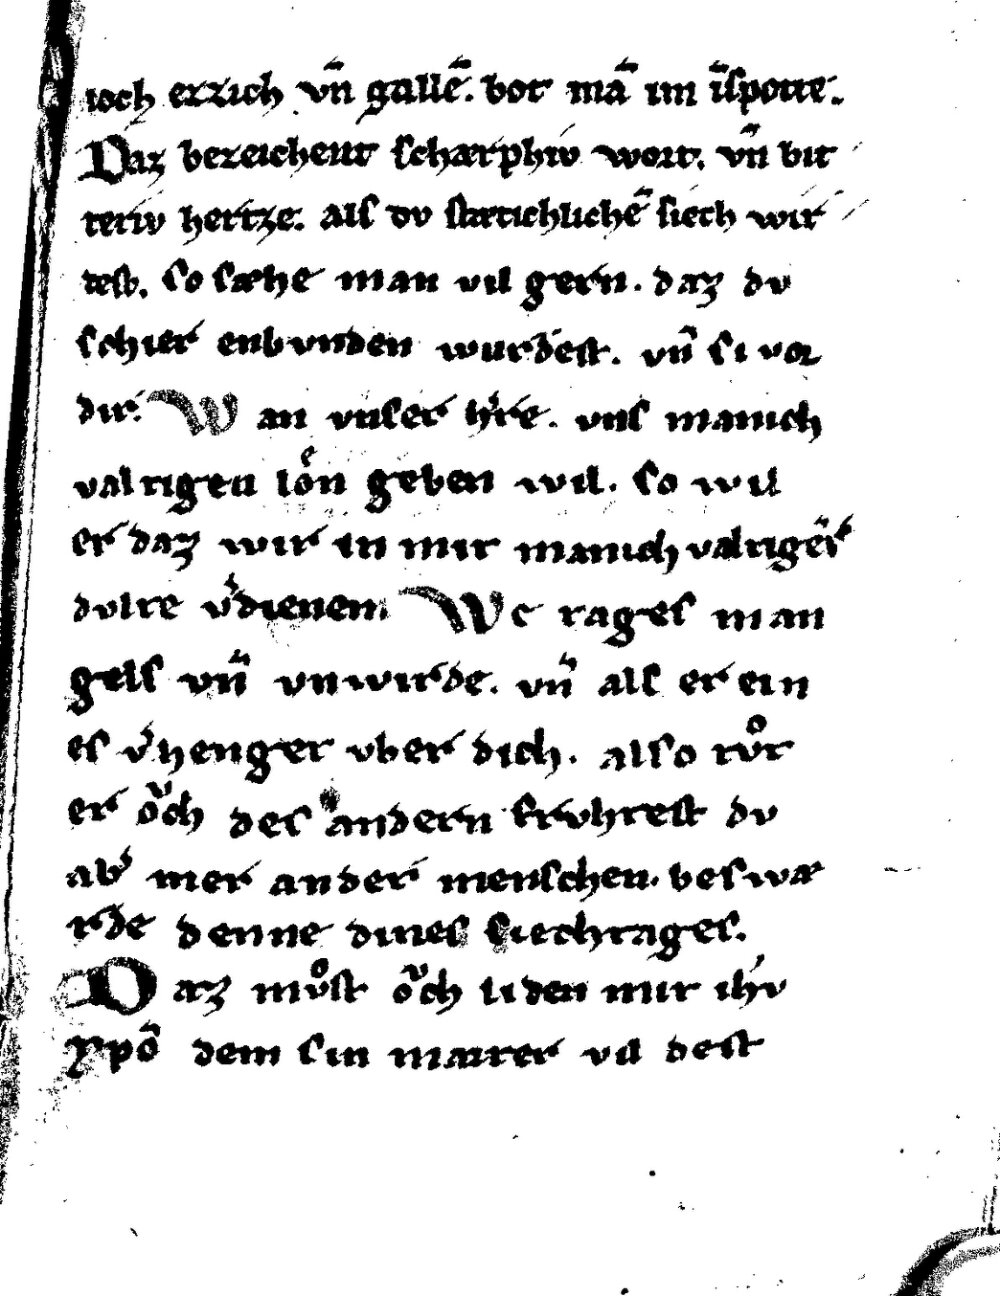 ioch ezzich vn̄ gallē. bot mā im ī spotte.
Daz bezeichent schærphiv wort. vn̄ bit
teriv hertze. als dv stætichlichē siech wir
dest. so sæhe man vil gern. daz dv
schier enbvnden wurdest. vn̄ si vor
dir. Wan vnser h̓re. vns manich
valtigen loͤn geben wil. so wil
er daz wir in mit manich valtigē
dvlte v̓dienem Wc tages man
gels vn̄ vnwirde. vn̄ als er ein
es v̓henget vber dich. also tvͦt
er oͮch des andern frvhtest dv
ab̓ mer ander menschen. beswæ
rde denne dines siechtages.
Daz mvͦst oͮch liden mit ih̓v
xp̄o dem sin marter vil dest